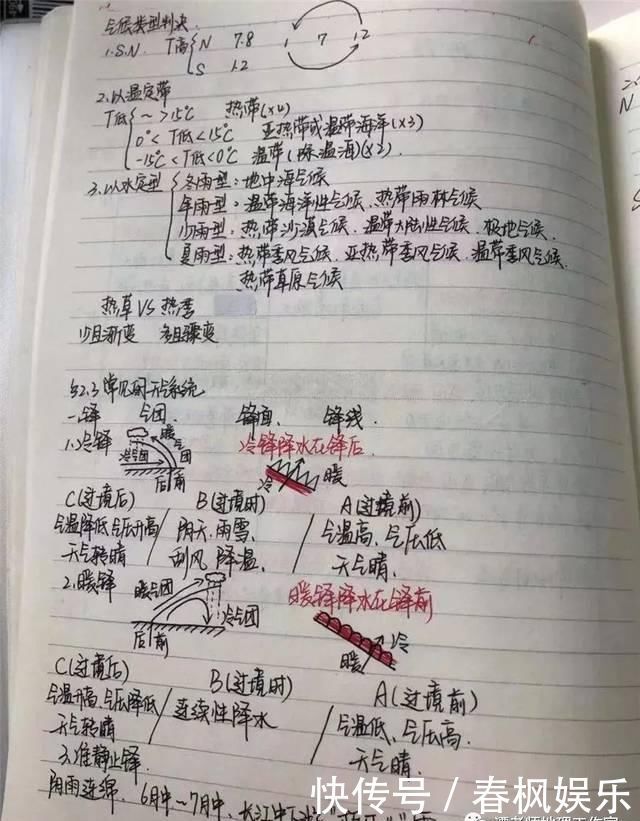 气候类型判决.
1.S.N. T高{N 7.8 1 7 12
S 1.2
2.以温定带
T低{~>15℃ 热带(×4)
0°<T低<15℃ 亚热带或温带海洋(×3)
-15℃<T低<0℃ 温带(除温海)(×3).
3.以水定型{冬雨型:地中海气候
年雨型:温带海洋性气候、热带雨林气候
少雨型:热带沙漠气候、温带大陆性气候、极地气候、
夏雨型:热带季风气候、亚热带季风气候、温带季风气候、
热带草原气候
热草VS热季
少且渐变 多且骤变
§2.3常见的天气系统
一.锋 气团. 锋面. 锋线.
1.冷锋 冷气团 暖气团 后 前
冷锋降水在锋后
冷 暖
C(过境后) B(过境时) A(过境前)
气温降低气压升高 / 阴天、雨雪、 / 气温高、气压低
天气转晴 刮风 降温、 天气晴、
2.暖锋 暖气团 冷气团 后 前
暖锋降水在锋前
暖 冷
C(过境后) B(过境时) A(过境前)
气温升高、气压降低 / 连续性降水 / 气温低、气压高.
天气转晴 天气晴.
3.准静止锋.
阴雨连绵. 6月中~7月中. 长江中下
快传号/春枫娱乐